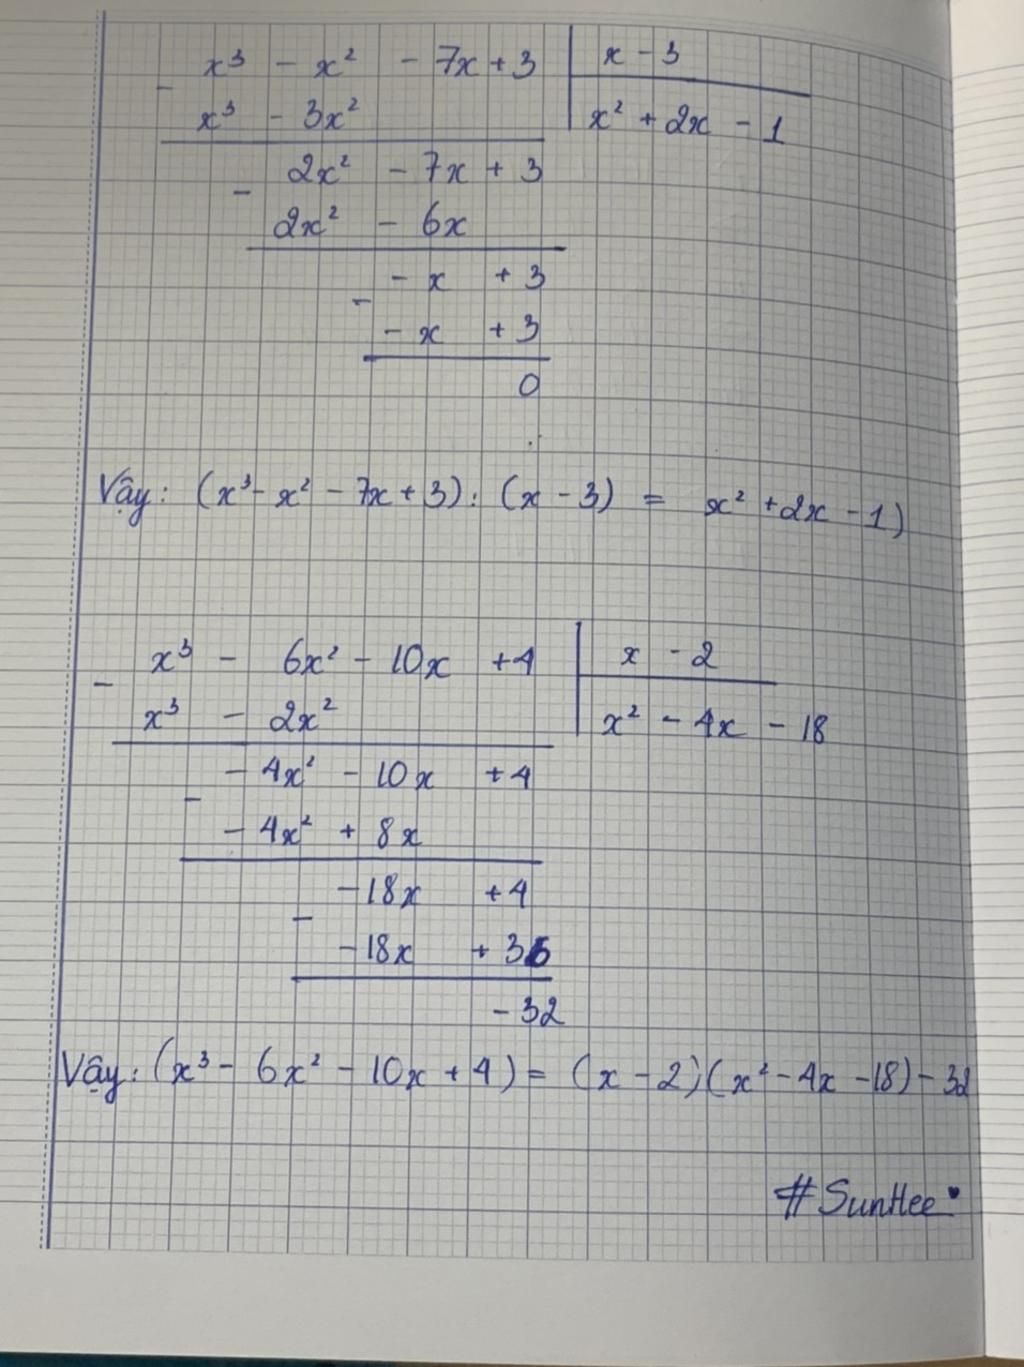 x³ - x² - 7x + 3 | x - 3
- x³ - 3x² | x² + 2x - 1
2x² - 7x + 3
- 2x² - 6x
- x + 3
- - x + 3
0
Vậy: (x³ - x² - 7x + 3) : (x - 3) = x² + 2x - 1)
x³ - 6x² - 10x + 4 | x - 2
- x³ - 2x² | x² - 4x - 18
- 4x² - 10x + 4
- - 4x² + 8x
- 18x + 4
- - 18x + 36
- 32
Vậy: (x³ - 6x² - 10x + 4) = (x - 2)(x² - 4x - 18) - 32
#SunHee